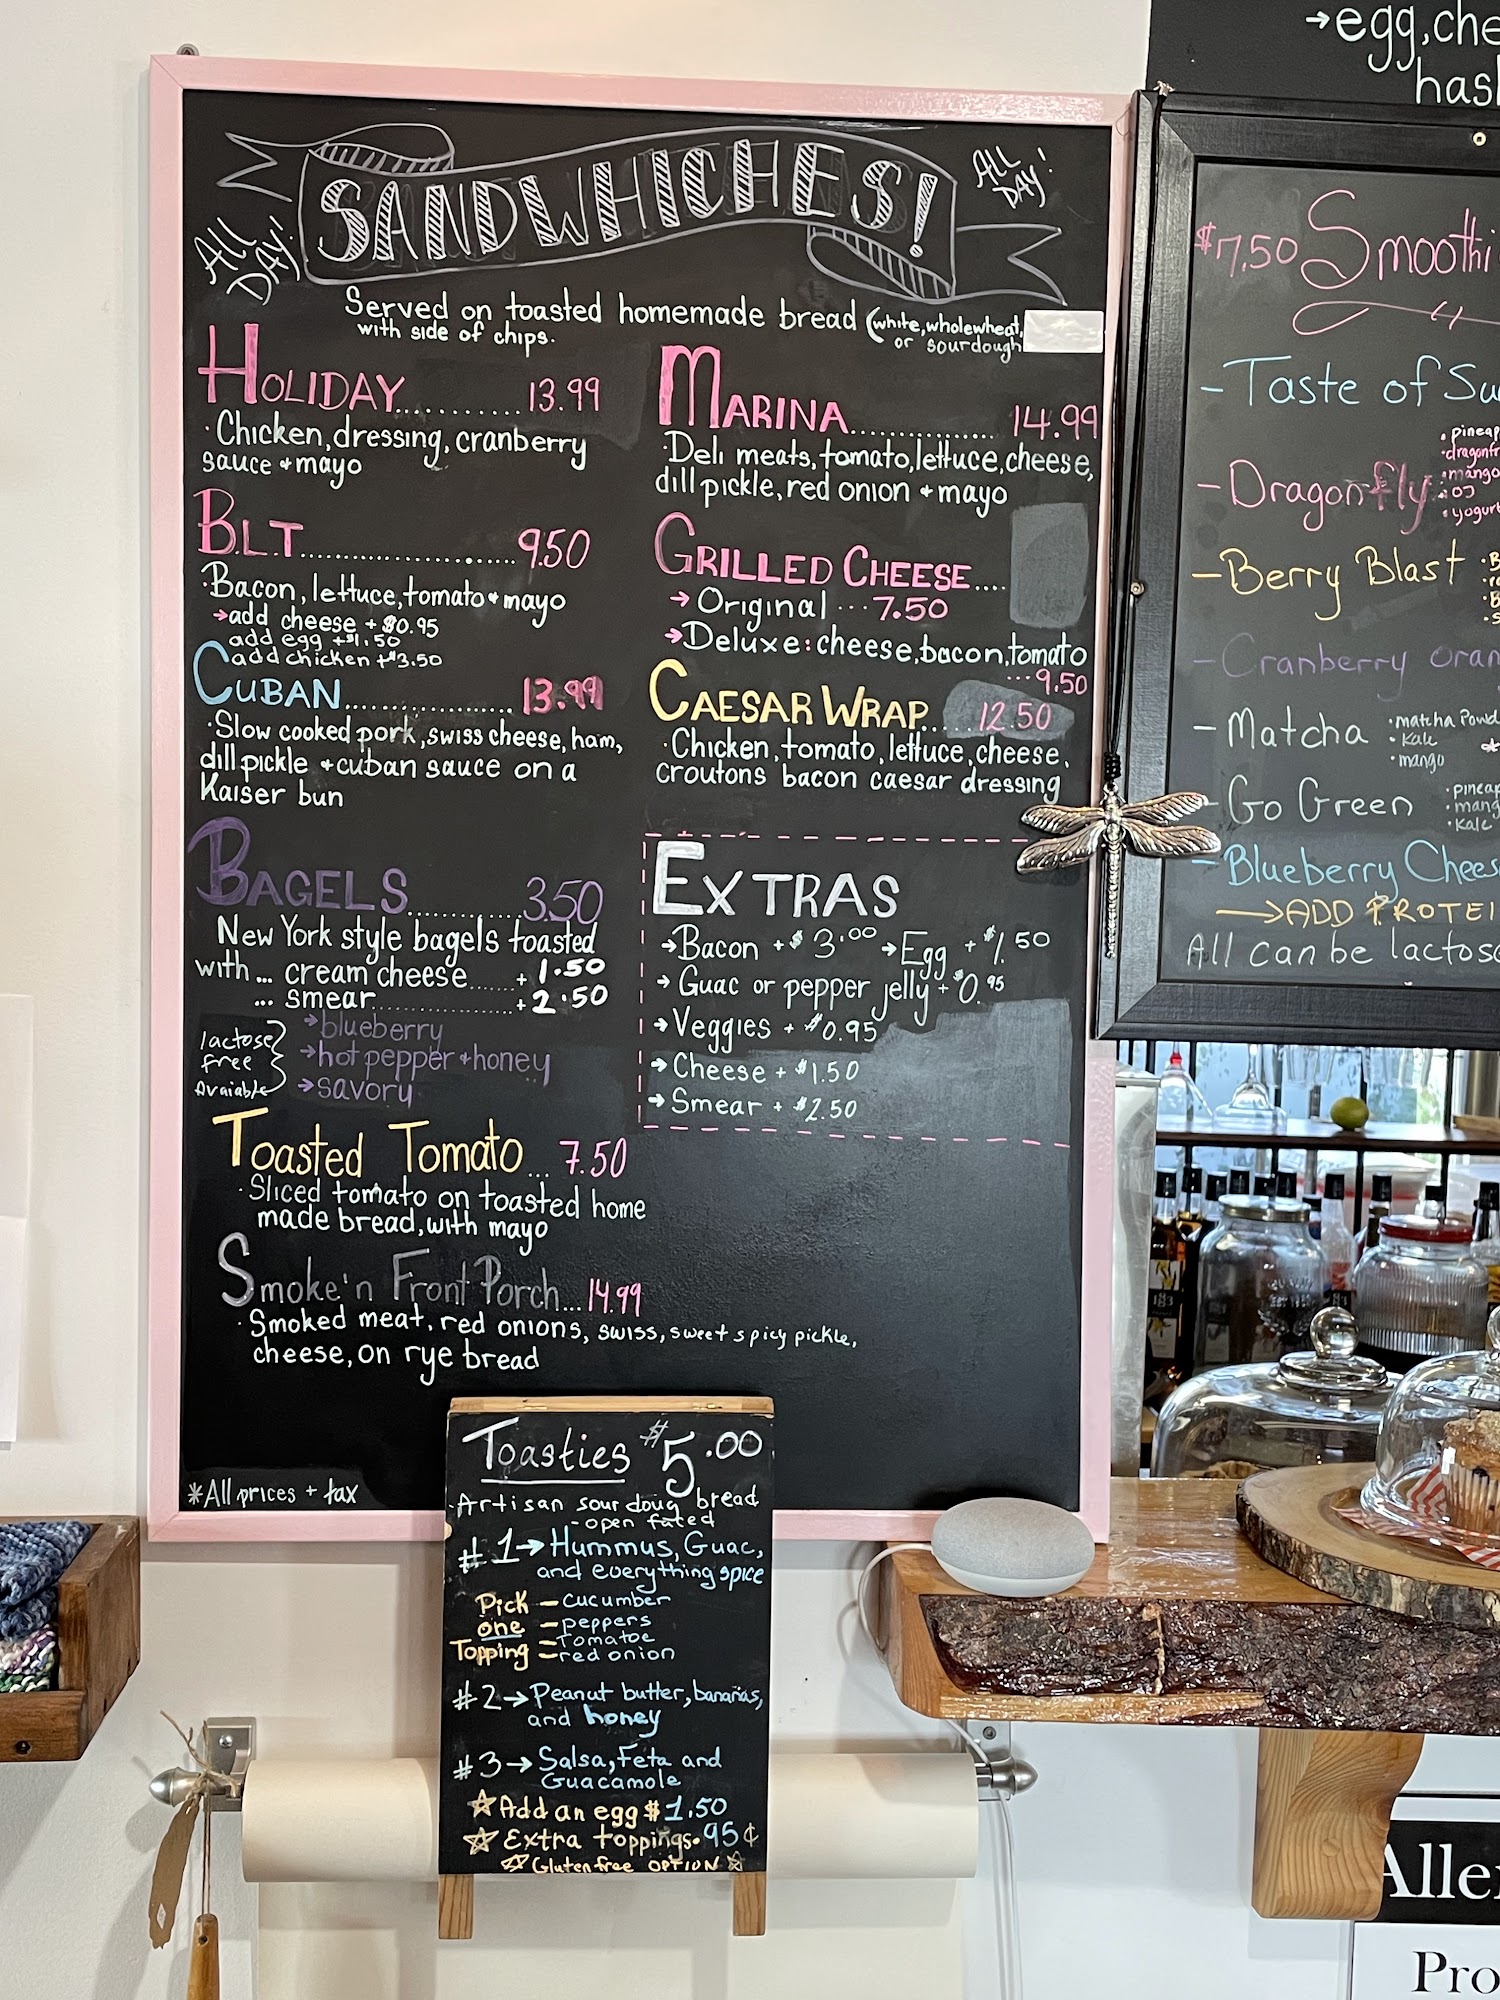 SANDWHICHES!
ALL DAY!
ALL DAY!
Served on toasted homemade bread (white, wholewheat,
with side of chips.
or sourdough
HOLIDAY........... 13.99
·Chicken, dressing, cranberry
sauce + mayo
B.L.T...................... 9.50
·Bacon, lettuce, tomato + mayo
→add cheese + $0.95
add egg + $1.50
add chicken + $3.50
CUBAN................... 13.99
·Slow cooked pork, swiss cheese, ham,
dill pickle + cuban sauce on a
Kaiser bun
BAGELS............3.50
New York style bagels toasted
with ... cream cheese...... + 1.50
... smear................ + 2.50
lactose
free
Avaiable
→blueberry
→hot pepper + honey
→savory
TOASTED TOMATO... 7.50
·Sliced tomato on toasted home
made bread, with mayo
Smoke'n Front Porch...14.99
·Smoked meat, red onions, swiss, sweet spicy pickle,
cheese, on rye bread
*All prices + tax
MARINA................ 14.99
·Deli meats, tomato, lettuce, cheese,
dill pickle, red onion + mayo
GRILLED CHEESE....
→Original ... 7.50
→Deluxe: cheese, bacon, tomato
... 9.50
CAESAR WRAP.... 12.50
·Chicken, tomato, lettuce, cheese,
croutons bacon caesar dressing
EXTRAS
→Bacon + $3.00 →Egg + $1.50
→Guac or pepper jelly + $0.95
→Veggies + $0.95
→Cheese + $1.50
→Smear + $2.50
Toasties $5.00
·Artisan sourdoug bread
- open fated
#1→Hummus, Guac,
and everything spice
Pick one Topping
– cucumber
– peppers
– Tomatoe
– red onion
#2→Peanut butter, bananas,
and honey
#3→Salsa, Feta and
Guacamole
☆Add an egg $1.50
☆Extra toppings .95¢
☆Gluten free OPTION☆
→egg, che
hasl
$7.50 Smoothi
- Taste of Su
- Dragonfly
·pineap
·dragonfr
·mango
·OJ
·yogurt
- Berry Blast
- Cranberry oran
- Matcha
·matcha Powd
·Kale
·mango
- Go Green
·pineap
·mang
·Kale
- Blueberry Chees
→ADD PROTEI
All can be lactose
Alle
Pro